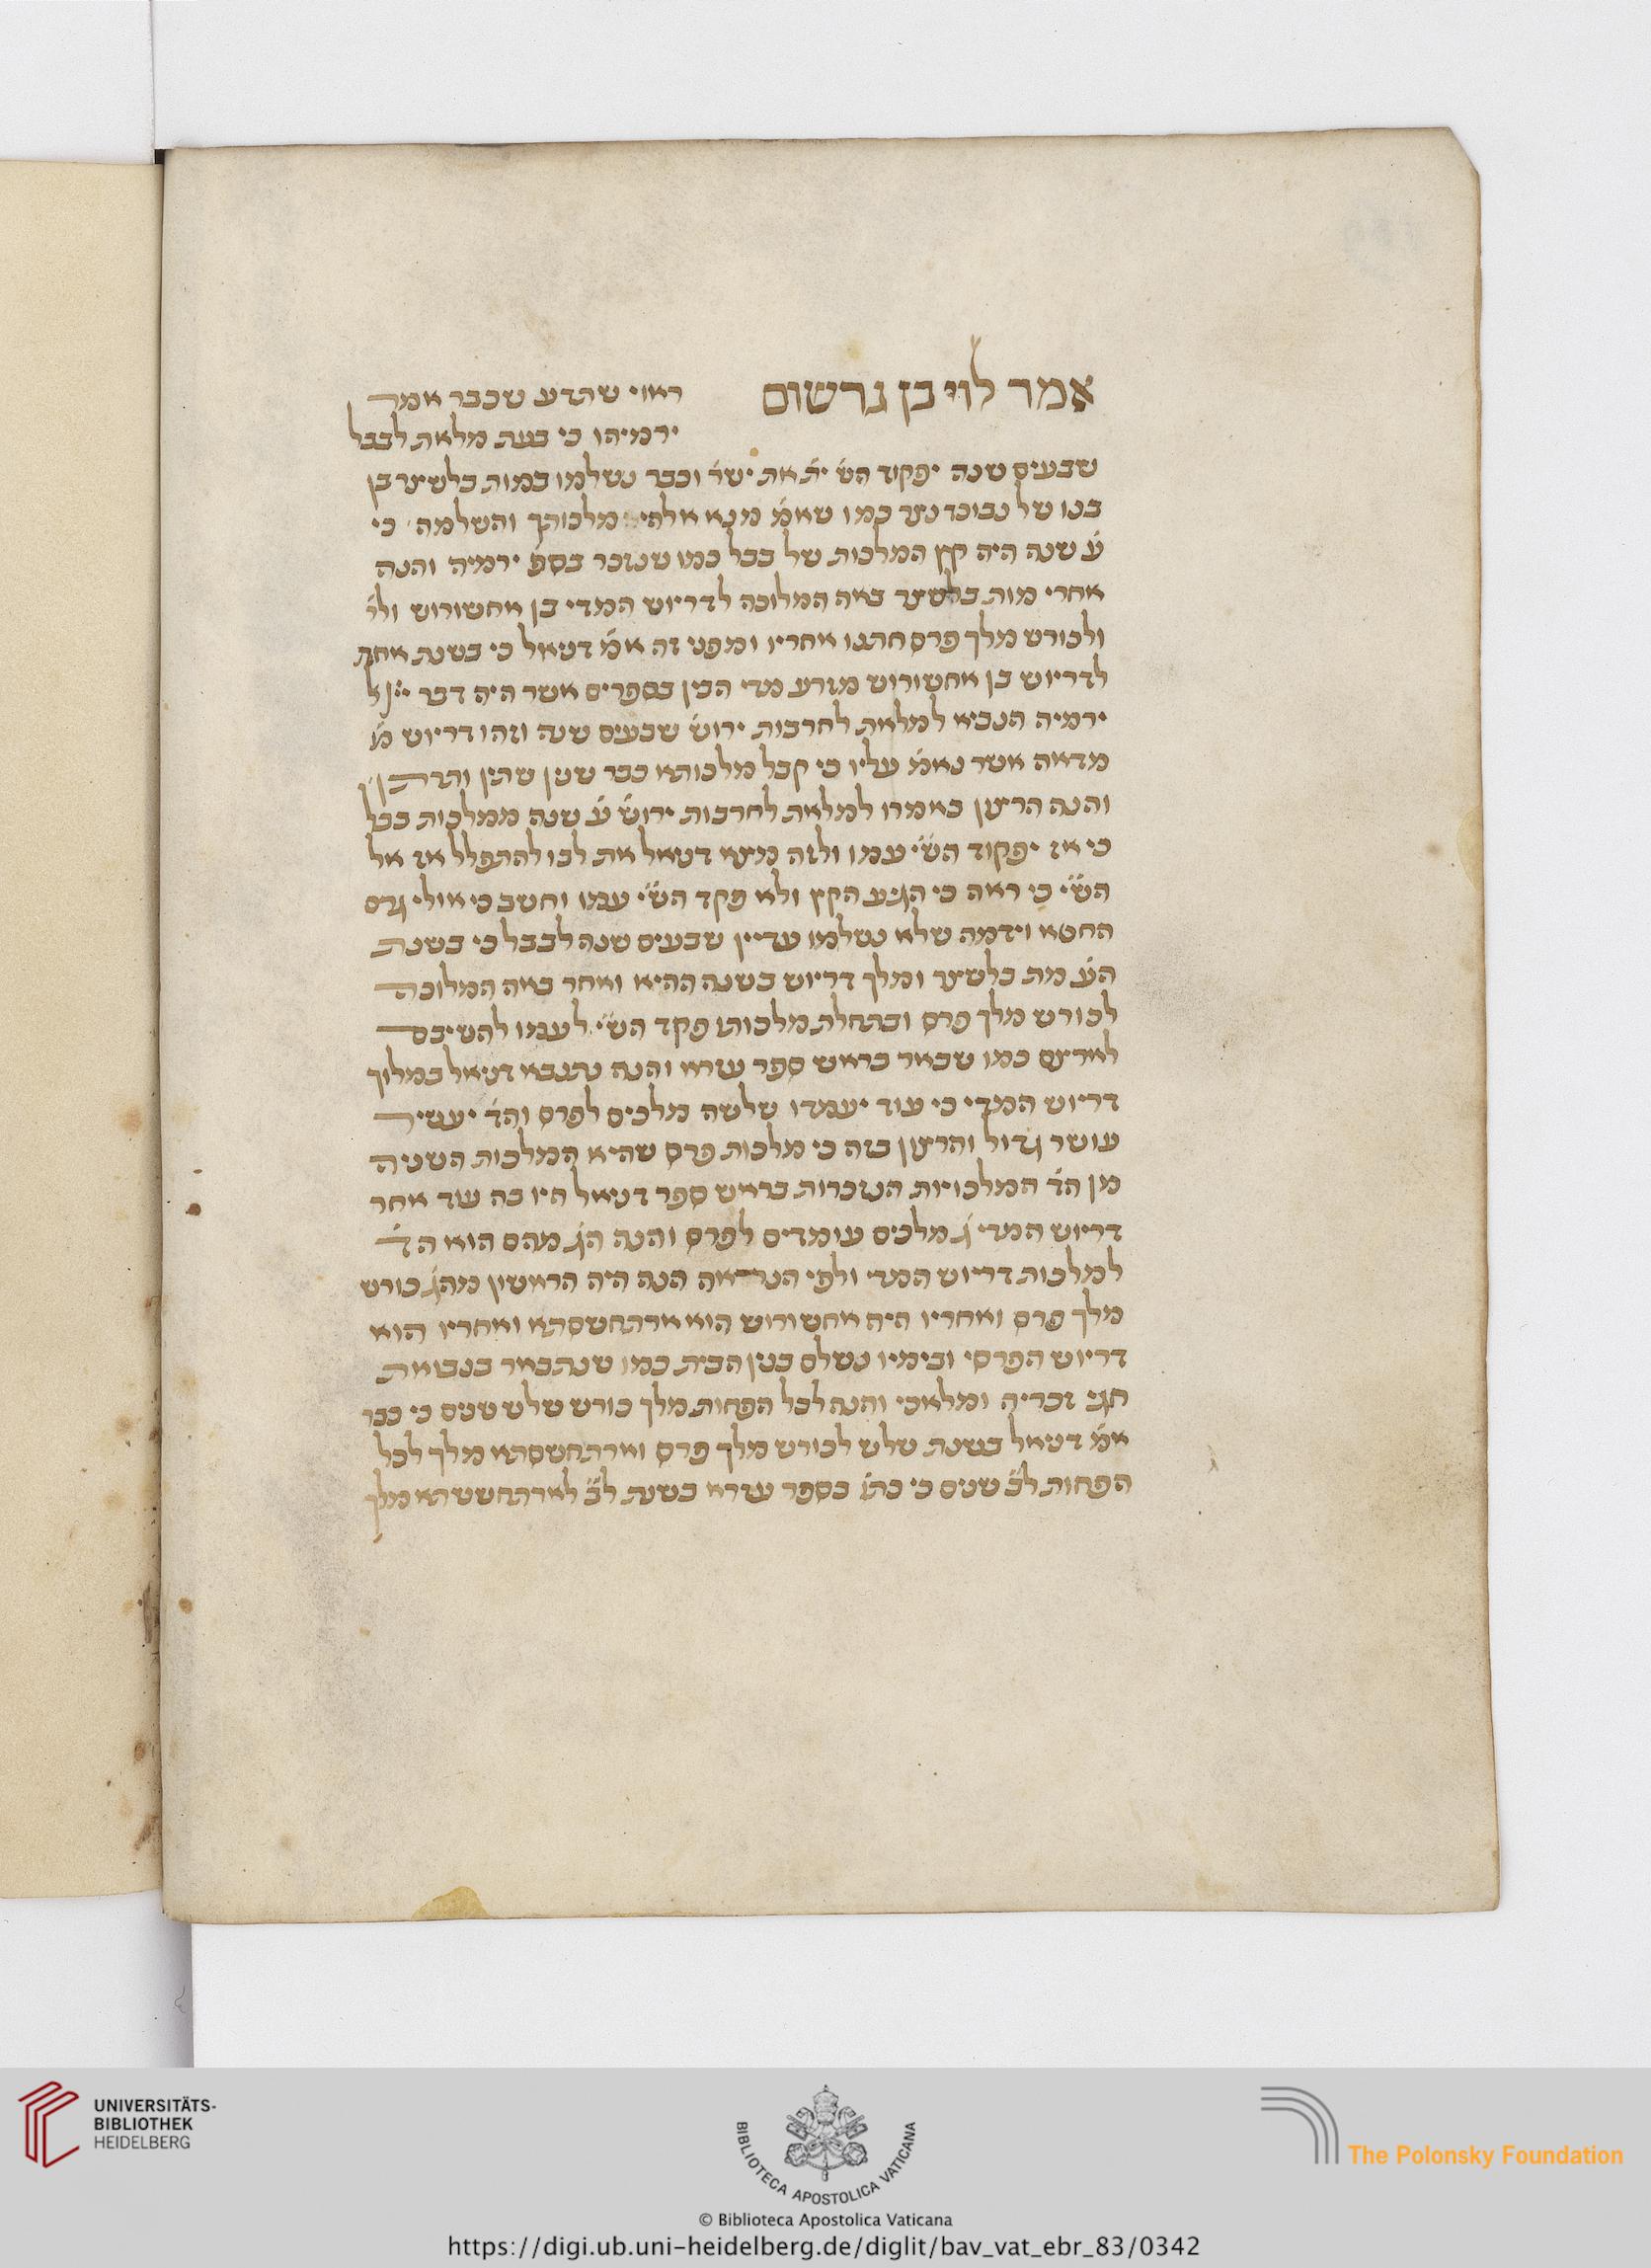 אמר לוי בן גרשום ראוי שתדע שכבר אמר
ירמיהו כי בעת מלאת לבבל
שבעים שנה יפקוד הש׳ ית׳ את ישר׳ וכבר נשלמו במות בלשצר בן
בנו של נבוכדנצר כמו שאמ׳ מנא אלהיא מלכותך והשלמה כי
ע׳ שנה היה קץ המלכות של בבל כמו שנזכר בספ׳ ירמיה והנה
אחרי מות בלשצר באה המלוכה לדריוש המדי בן אחשורוש
ולכורש מלך פרס חתנו אחריו ומפני זה אמ׳ דניאל כי בשנת אחת
לדריוש בן אחשורוש מזרע מדי הבין בספרים אשר היה דבר ייי׳ אל
ירמיה הנביא למלאת לחרבות ירוש׳ שבעים שנה וזהו דריוש
מדאה אשר נאמ׳ עליו כי קבל מלכותא כבר שנין שתין ותרתין
והנה הרצון באמרו למלאת לחרבות ירוש׳ ע׳ שנה ממלכות בבל
כי אז יפקוד הש״י עמו ולזה מצא דניאל את לבו להתפלל אז אל
הש״י כי ראה כי הגיע הקץ ולא פקד הש״י עמו וחשב כי אולי גרם
החטא וידמה שלא נשלמו עדיין שבעים שנה לבבל כי בשנת
הע׳ מת בלשצר ומלך דריוש בשנה ההיא ואחר באה המלוכה
לכורש מלך פרס ובתחלת מלכותו פקד הש״י לעמו להשיבם
לארצם כמו שבאר בראש ספר עזרא והנה נתנבא דניאל במלוך
דריוש המדי כי עוד יעמדו שלשה מלכים לפרס והד׳ יעשיר
עושר גדול והרצון בזה כי מלכות פרס שהיא המלכות השניה
מן הד׳ המלכויות הנזכרות בראש ספר דניאל היו בה עוד אחר
דריוש המדי ג׳ מלכים עומדים לפרס והנה הג׳ מהם הוא הד׳
למלכות דריוש המדי ולפי הנראה הנה היה הראשון מהג׳ כורש
מלך פרס ואחריו היה אחשורוש הוא ארתחשסתא ואחריו הוא
דריוש הפרסי ובימיו נשלם בנין הבית כמו שנתבאר בנבואת
חגי זכריה ומלאכי והנה לכל הפחות מלך כורש שלש שנים כי כבר
אמ׳ דניאל בשנת שלש לכורש מלך פרס וארתחשסתא מלך לכל
הפחות ל״ב שנים כי כתו׳ בספר עזרא בשנת ל״ב לארתחששתא מלך
UNIVERSITÄTS-
BIBLIOTHEK
HEIDELBERG
BIBLIOTECA APOSTOLICA VATICANA
The Polonsky Foundation
© Biblioteca Apostolica Vaticana
https://digi.ub.uni-heidelberg.de/diglit/bav_vat_ebr_83/0342